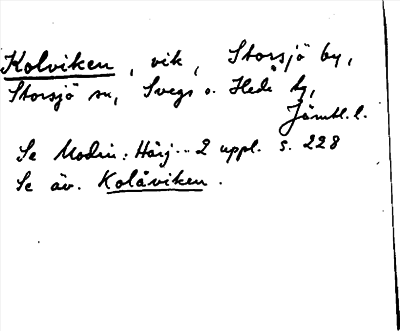 Kolviken, vik, Storsjö by,
Storsjö sn, Svegs o. Hede tg,
Jämtl. l.
Se Modin: Härj... 2 uppl. s. 228
Se äv. Kolåviken.